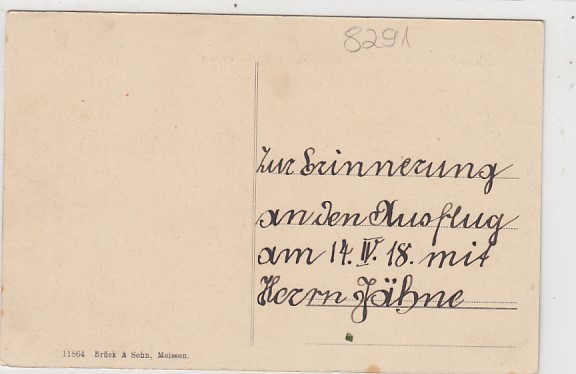 8291
Zur Erinnerung
an den Ausflug
am 14. IV. 18. mit
Herrn Jähne
11864 Brück & Sohn, Meissen.